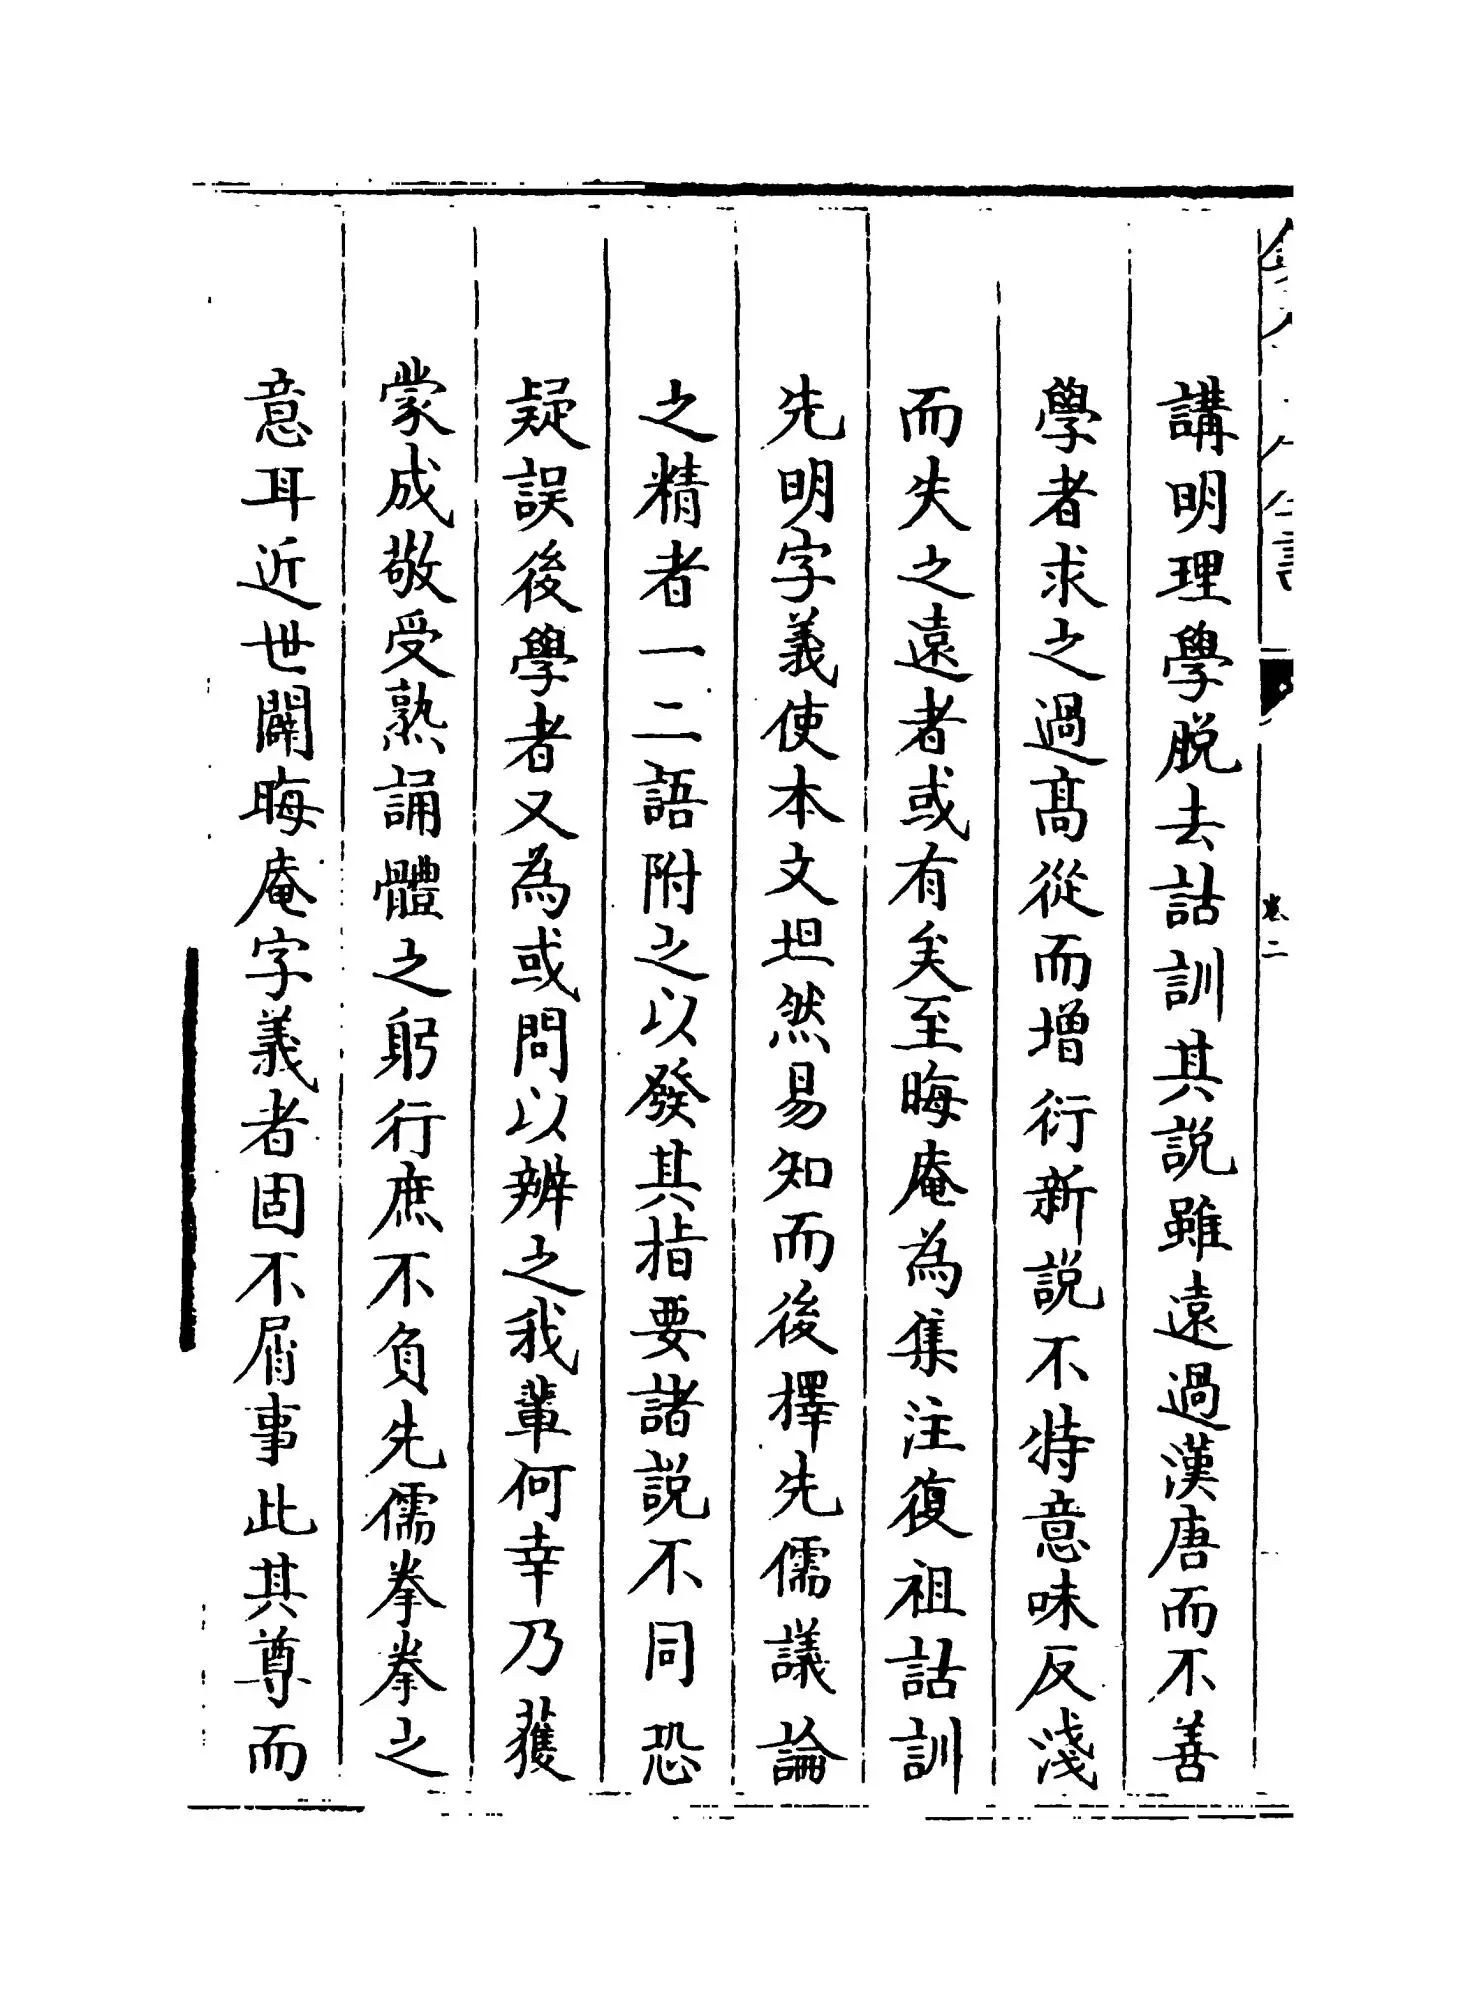 講明理學脱去詁訓其説雖遠過漢唐而不善
學者求之過髙從而增衍新説不特意味反淺
而失之逺者或有矣至晦庵為集注復祖詁訓
先明字義使本文坦然易知而後擇先儒議論
之精者一二語附之以發其指要諸説不同恐
疑誤後學者又為或問以辨之我輩何幸乃獲
蒙成敬受熟誦體之躬行庶不負先儒拳拳之
意耳近世闢晦庵字義者固不屑事此其尊而
卷二